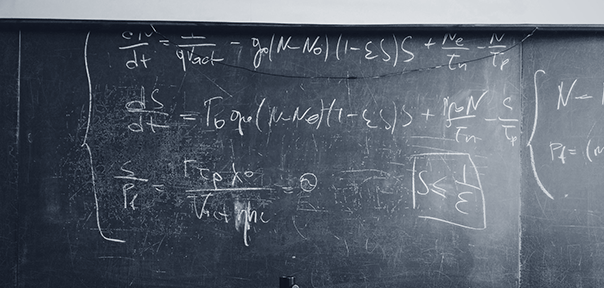 dN/dt = I/qVact - g0(N-N0)(1-εS)S + Ne/τn - N/τp
dS/dt = Γ0g0(N-N0)(1-εS)S + Γβ0N/τn - S/τp
S/Pf = Γτpλ0/Vactηhc = ϑ
S ≤ 1/ε
N -
Pf = (m